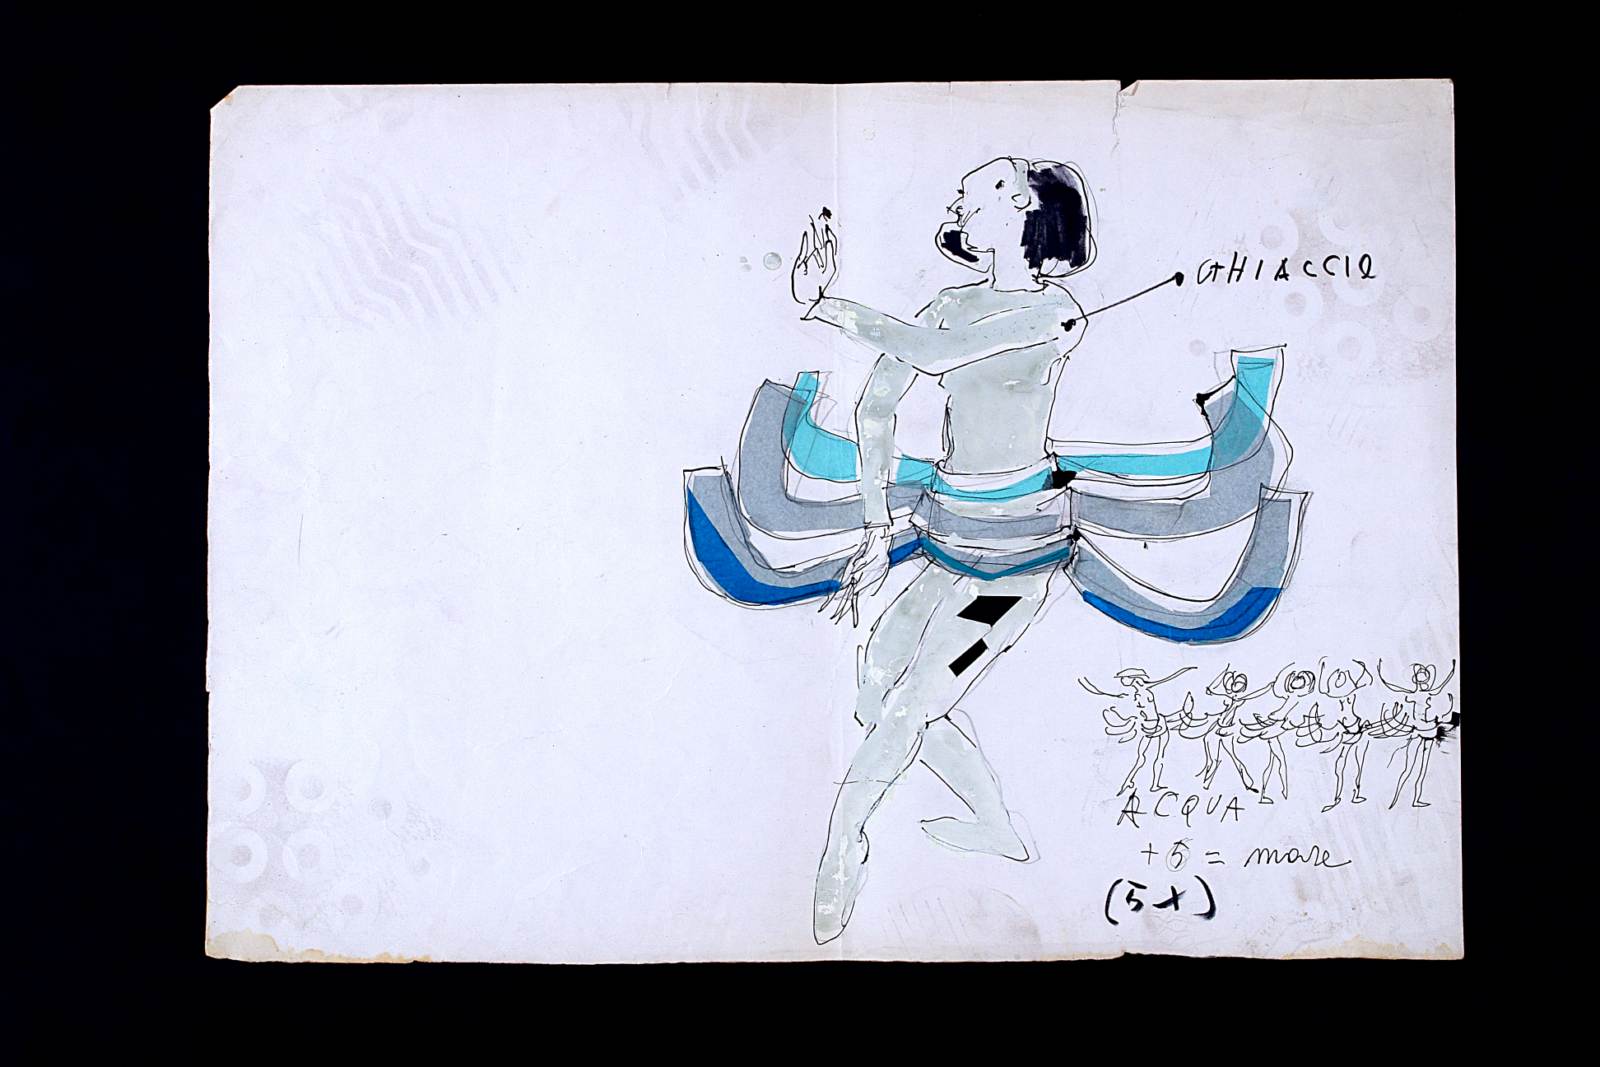 GHIACCIO
ACQUA
+ 5 = mare
(5x)